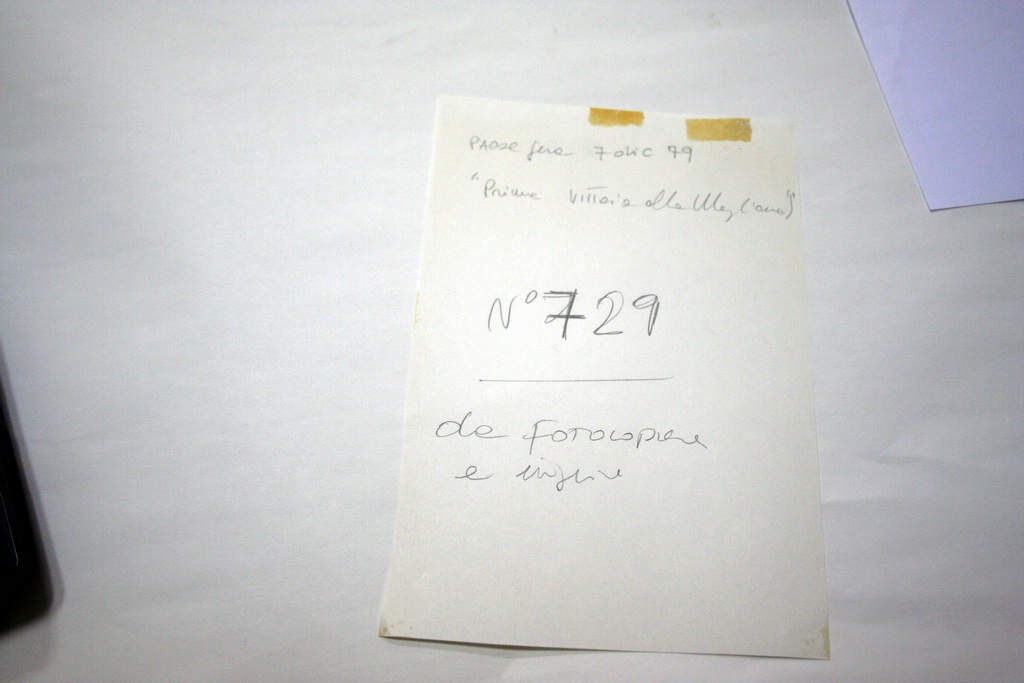 PAESE Sera 7 dic 79
"Prima Vittoria alla Magliana"
N° 729
da FOTOCOPIARE
e